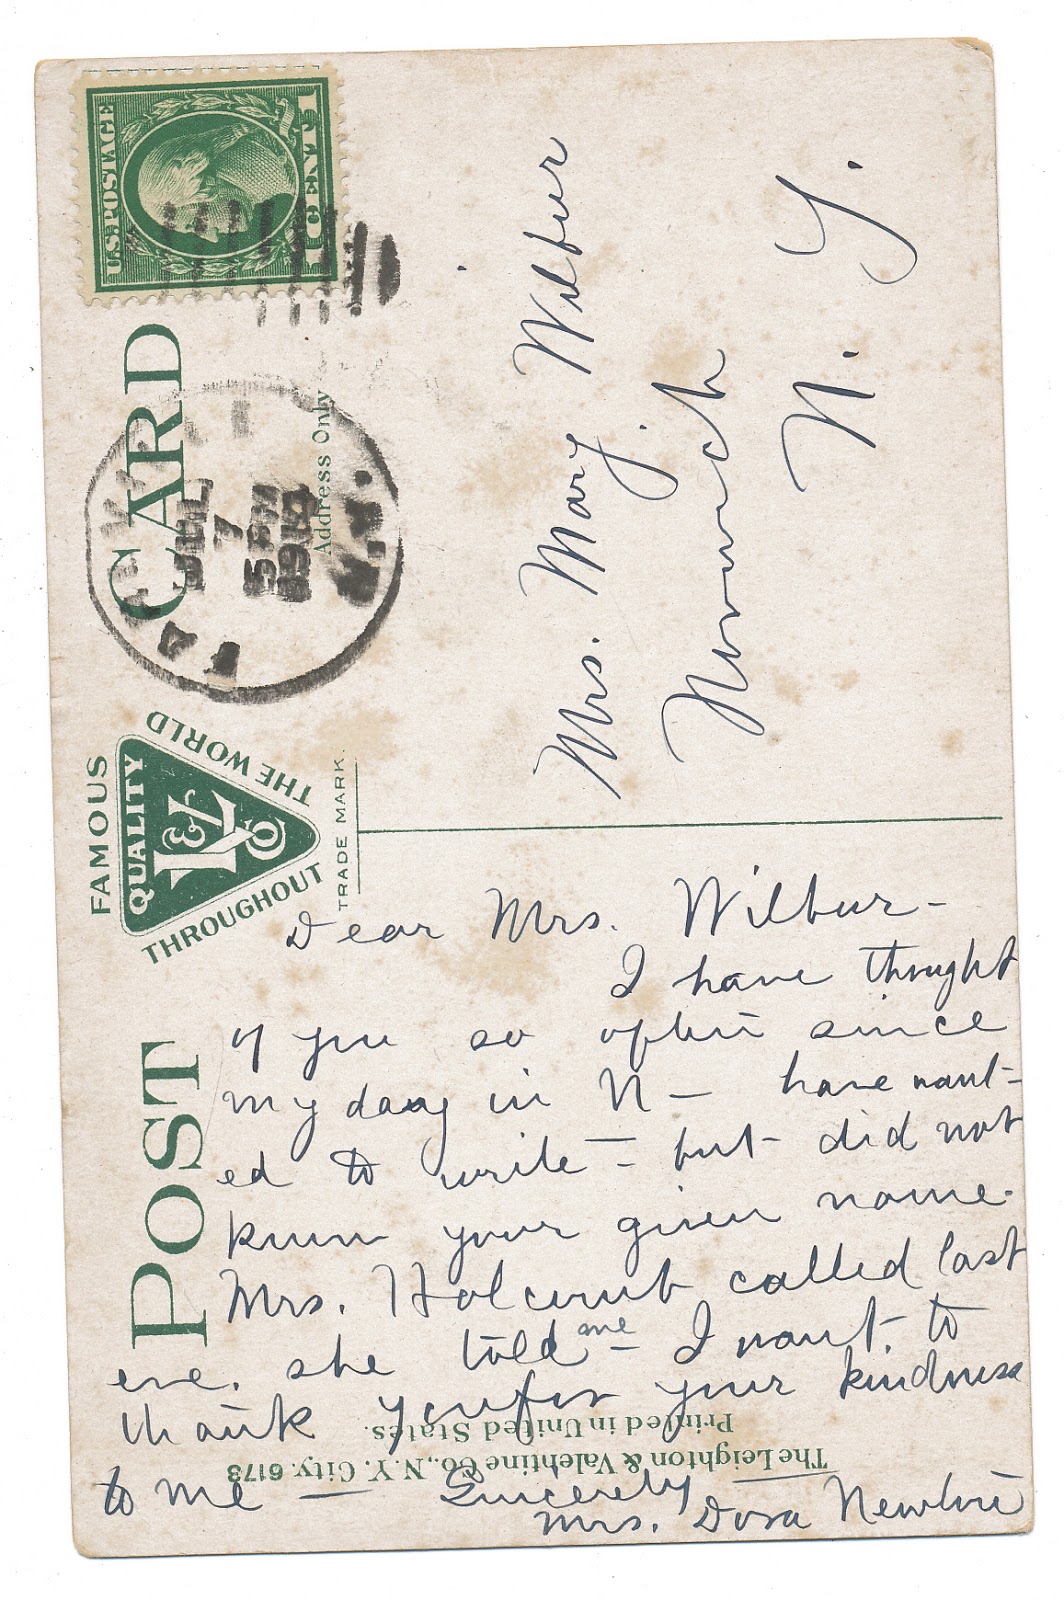 FAMOUS
QUALITY
THROUGHOUT
THE WORLD
L & V Co
TRADE MARK.
POST CARD
Address Only
U.S. POSTAGE
1 CENT 1
JUL
7
5 PM
1914
N.Y.
Mrs. Mary Wilbur
Norwich
N. Y.
Dear Mrs. Wilbur-
I have thought
of you so often since
my day in N - have want-
ed to write - but did not
know your given name.
Mrs. Holcomb called last
eve. she told me - I want to
thank you for your kindness
to me - Sincerely
Mrs. Dora Newton
The Leighton & Valentine Co., N.Y. City. 6173
Printed in United States.